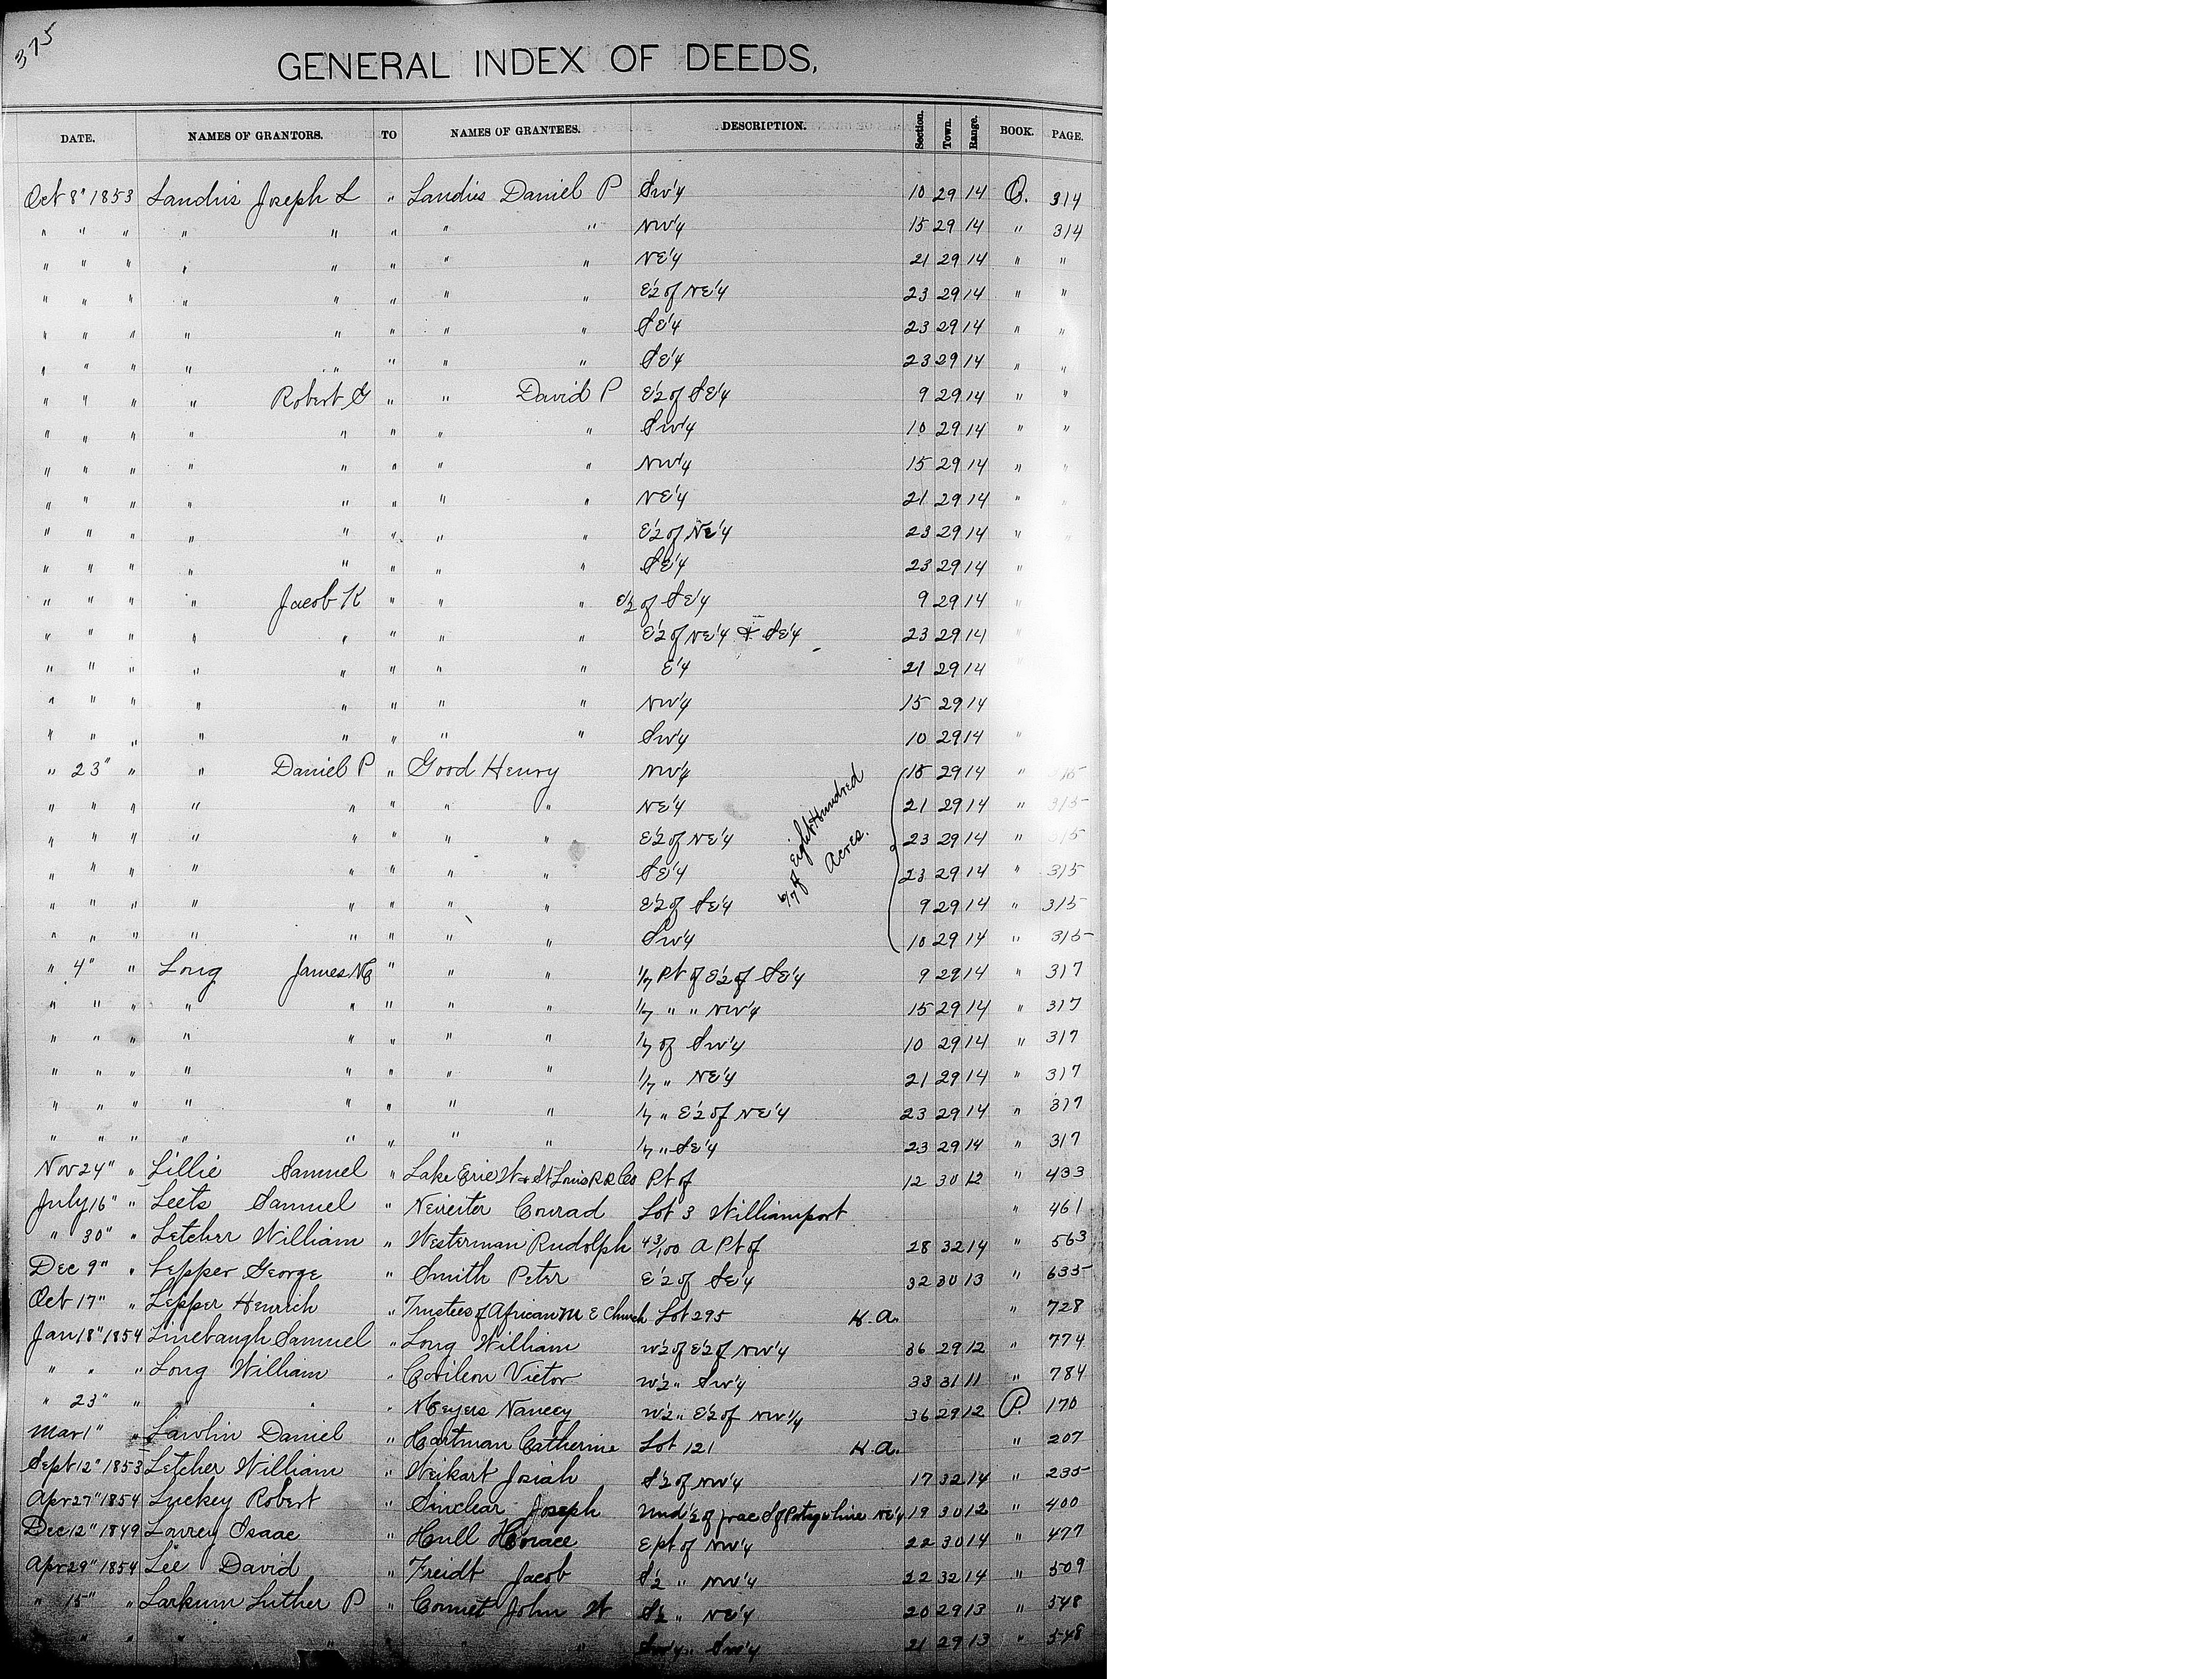 375
GENERAL INDEX OF DEEDS,
DATE. NAMES OF GRANTORS. TO NAMES OF GRANTEES. DESCRIPTION. Section. Town. Range. BOOK. PAGE.
Oct 8" 1853 Landis Joseph L " Landis Daniel P Sw1/4 10 29 14 O. 314
" " " " " " " " NW1/4 15 29 14 " 314
" " " " " " " " NE1/4 21 29 14 " "
" " " " " " " " E1/2 of NE1/4 23 29 14 " "
" " " " " " " " SE1/4 23 29 14 " "
" " " " " " " " SE1/4 23 29 14 " "
" " " " Robert G " " David P E1/2 of SE1/4 9 29 14 " "
" " " " " " " " Sw1/4 10 29 14 " "
" " " " " " " " NW1/4 15 29 14 " "
" " " " " " " " NE1/4 21 29 14 " "
" " " " " " " " E1/2 of NE1/4 23 29 14 " "
" " " " " " " " SE1/4 23 29 14 "
" " " " Jacob K " " " E1/2 of SE1/4 9 29 14 "
" " " " " " " " E1/2 of NE1/4 & SE1/4 23 29 14 "
" " " " " " " " E1/4 21 29 14
" " " " " " " " NW1/4 15 29 14
" " " " " " " " Sw1/4 10 29 14 "
" 23" " " Daniel P " Good Henry NW1/4 15 29 14 " 315
" " " " " " " " NE1/4 21 29 14 " 315
" " " " " " " " E1/2 of NE1/4 23 29 14 " 315
" " " " " " " " SE1/4 23 29 14 " 315
" " " " " " " " E1/2 of SE1/4 9 29 14 " 315
" " " " " " " " Sw1/4 10 29 14 " 315
of Eight Hundred
Acres.
" 4" " Long James " " " 1/7 Pt of E1/2 of SE1/4 9 29 14 " 317
" " " " " " " " 1/7 " " NW1/4 15 29 14 " 317
" " " " " " " " 1/7 of Sw1/4 10 29 14 " 317
" " " " " " " " 1/7 " NE1/4 21 29 14 " 317
" " " " " " " " 1/7 " E1/2 of NE1/4 23 29 14 " 317
" " " " " " " " 1/7 " SE1/4 23 29 14 " 317
Nov 24" " Lillie Samuel " Lake Erie W & St Louis R R Co Pt of 12 30 12 " 433
July 16" " Leets Samuel " Neireiter Conrad Lot 3 Williamport " 461
" 30" " Letcher William " Westerman Rudolph 43/100 A Pt of 28 32 14 " 563
Dec 9" " Lepper George " Smith Peter E1/2 of SE1/4 32 30 13 " 635
Oct 17" " Lepper Henrich " Trustees of African M E Church Lot 295 H.A. " 728
Jan 18" 1854 Linebaugh Samuel " Long William W1/2 of E1/2 of NW1/4 36 29 12 " 774
" " " Long William " Victor W1/2 " Sw1/4 33 31 11 " 784
" 23" " " " Meyers Nancy W1/2 " E1/2 of NW1/4 36 29 12 P. 170
Mar 1" " Lawlin Daniel " Hartman Catherine Lot 121 H.A. " 207
Sept 12" 1853 Letcher William " Weikart Josiah S1/2 of NW1/4 17 32 14 " 235
Apr 27" 1854 Luckey Robert " Sinclear Joseph Und 1/2 of frac S of line NE1/4 19 30 12 " 400
Dec 12" 1849 Lowrey Isaac " Hull Horace E pt of NW1/4 22 30 14 " 477
Apr 29" 1854 Lee David " Freidt Jacob S1/2 " NW1/4 22 32 14 " 509
" 15" " Larkum Luther P " Comet John W S1/2 " NE1/4 20 29 13 " 548
" " " " " " Sw1/4 " Sw1/4 21 29 13 " 548